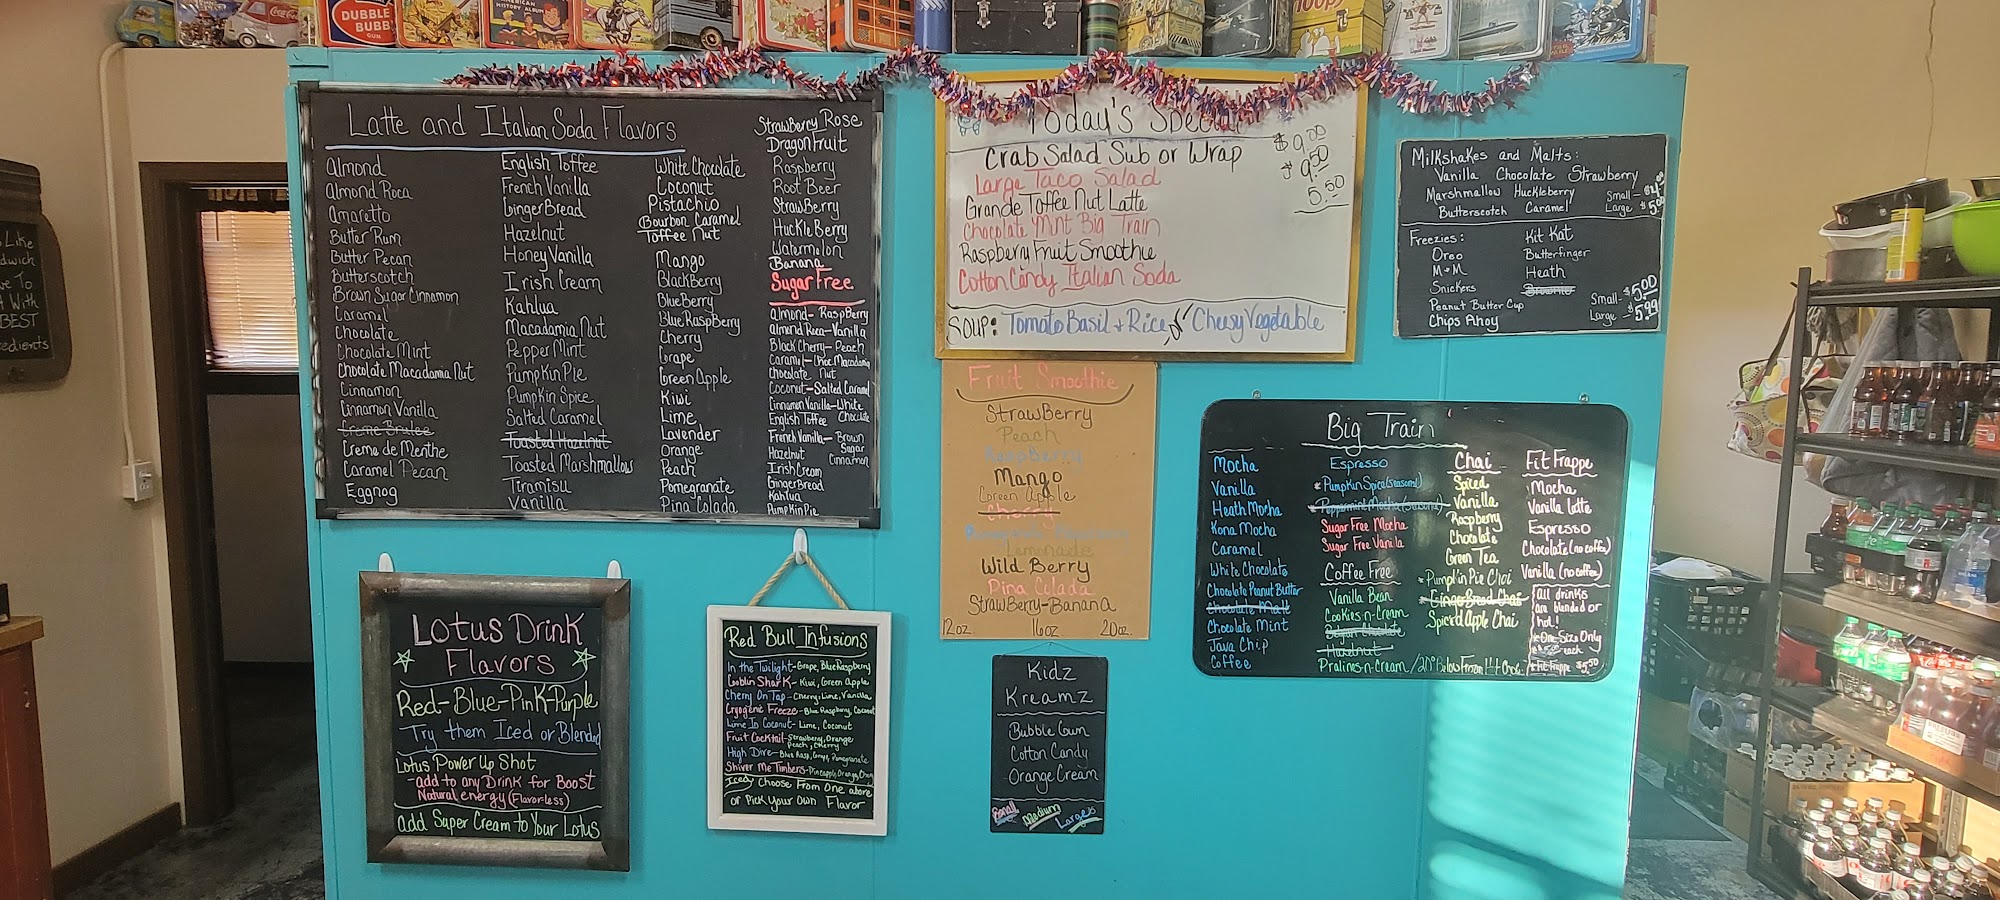 DUBBLE BUBBLE
GUM
Like
dwich
ve To
t With
BEST
edients
Latte and Italian Soda Flavors
Almond
Almond Roca
Amaretto
Butter Rum
Butter Pecan
Butterscotch
Brown Sugar Cinnamon
Caramel
Chocolate
Chocolate Mint
Chocolate Macadamia Nut
Cinnamon
Cinnamon Vanilla
Creme Brulee
Creme de Menthe
Caramel Pecan
Eggnog
English Toffee
French Vanilla
GingerBread
Hazelnut
Honey Vanilla
Irish Cream
Kahlua
Macadamia Nut
PepperMint
PumpkinPie
Pumpkin Spice
Salted Caramel
Toasted Hazelnut
Toasted Marshmallow
Tiramisu
Vanilla
White Chocolate
Coconut
Pistachio
Bourbon Caramel
Toffee Nut
Mango
BlackBerry
BlueBerry
Blue RaspBerry
Cherry
Grape
Green Apple
Kiwi
Lime
Lavender
Orange
Peach
Pomegranate
Pina Colada
StrawBerry Rose
DragonFruit
Raspberry
Root Beer
StrawBerry
HuckleBerry
Watermelon
Banana
Sugar Free
Almond - RaspBerry
Almond Roca - Vanilla
Black Cherry - Peach
Caramel - Choc Macadamia
Chocolate Nut
Coconut - Salted Caramel
Cinnamon Vanilla - White
English Toffee Chocolate
French Vanilla - Brown
Hazelnut Sugar
Irish Cream Cinnamon
GingerBread
Kahlua
PumpkinPie
Today's Special
Crab Salad Sub or Wrap $9.00
Large Taco Salad $9.50
Grande Toffee Nut Latte 5.50
Chocolate Mint Big Train
Raspberry Fruit Smoothie
Cotton Candy Italian Soda
Soup: Tomato Basil + Rice or Cheesy Vegetable
Milkshakes and Malts:
Vanilla Chocolate Strawberry
Marshmallow Huckleberry Small - $4.00
Butterscotch Caramel Large $5.00
Freezies:
Oreo
M+M
Snickers
Peanut Butter Cup
Chips Ahoy
Kit Kat
Butterfinger
Heath
Brownie
Small - $5.00
Large - $5.99
Fruit Smoothie
StrawBerry
Peach
RaspBerry
Mango
Green Apple
Cherry
Lemonade
Wild Berry
Pina Colada
StrawBerry-Banana
12oz. 16oz 20oz.
Big Train
Mocha
Vanilla
Heath Mocha
Kona Mocha
Caramel
White Chocolate
Chocolate Peanut Butter
Chocolate Malt
Chocolate Mint
Java Chip
Coffee
Espresso
*Pumpkin Spice (seasonal)
*Peppermint Mocha (Seasonal)
Sugar Free Mocha
Sugar Free Vanilla
Coffee Free
Vanilla Bean
Cookies-n-Cream
Belgian Chocolate
Hazelnut
Pralines-n-Cream / 20° Below Frozen Hot Choc.
Chai
Spiced
Vanilla
Raspberry
Chocolate
Green Tea
*Pumpkin Pie Chai
*GingerBread Chai
Spiced Apple Chai
Fit Frappe
Mocha
Vanilla Latte
Espresso
Chocolate (no coffee)
Vanilla (no coffee)
all drinks
are blended or
hot!
*One Size Only
each
*Fit Frappe $5.50
Lotus Drink
Flavors
Red-Blue-Pink-Purple
Try them Iced or Blended
Lotus Power Up Shot
-add to any Drink for Boost
Natural energy (Flavor-less)
add Super Cream to Your Lotus
Red Bull Infusions
In the Twilight - Grape, BlueRaspberry
Goblin Shark - Kiwi, Green Apple
Cherry On Tap - Cherry, Lime, Vanilla
Cryogenic Freeze - Blue Raspberry, Coconut
Lime In Coconut - Lime, Coconut
Fruit Cocktail - Strawberry, Orange
Peach, Cherry
High Dive - Blue Rasp, Grape, Pomegranate
Shiver Me Timbers - Pineapple, Orange, Cherry
Iced / Choose From One above
or Pick Your Own Flavor
Kidz
Kreamz
Bubble Gum
Cotton Candy
Orange Cream
Small Medium Large